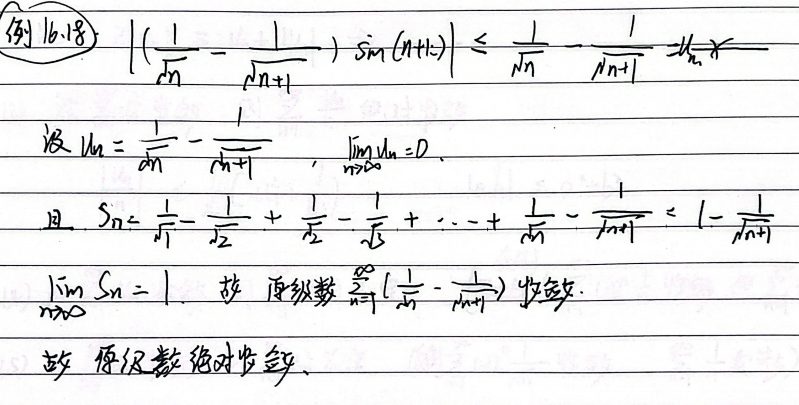 例16.18. |(1/√n - 1/√(n+1)) sin(n+k)| ≤ 1/√n - 1/√(n+1)
设 Un = 1/√n - 1/√(n+1) , lim n→∞ Un = 0.
且 Sn = 1/√1 - 1/√2 + 1/√2 - 1/√3 + ... + 1/√n - 1/√(n+1) = 1 - 1/√(n+1)
lim n→∞ Sn = 1 故 原级数 ∞ Σ n=1 (1/√n - 1/√(n+1)) 收敛.
故 原级数绝对收敛、